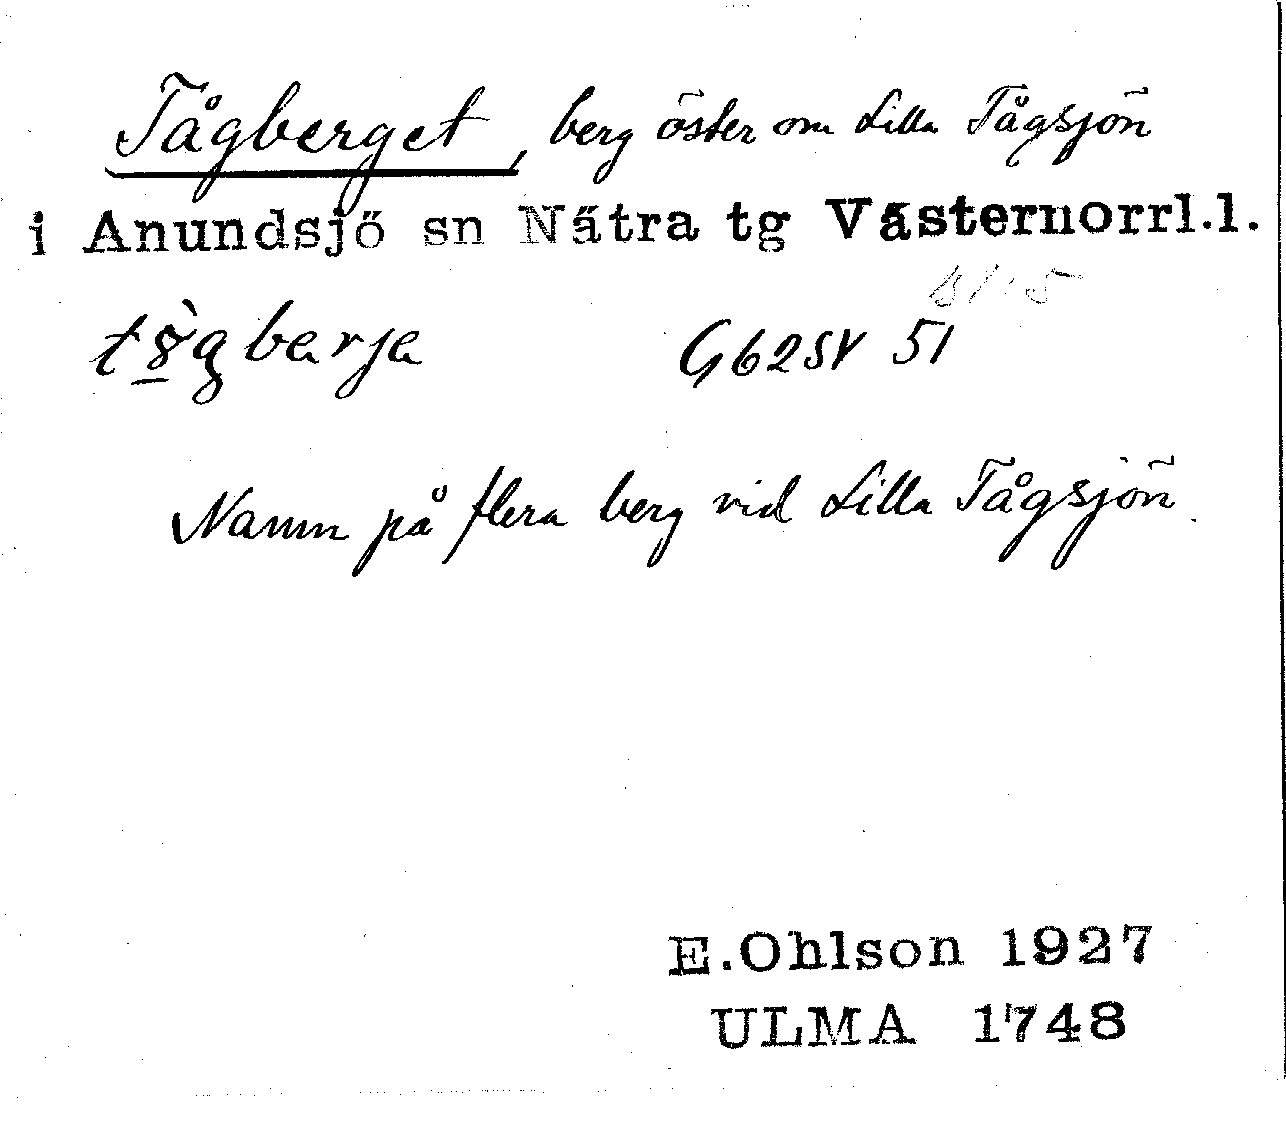 Tågberget, berg öster om Lilla Tågsjön
i Anundsjö sn Nätra tg Västernorrl.l.
G62SV 51
Namn på flera berg vid Lilla Tågsjön.
E.Ohlson 1927
ULMA 1748